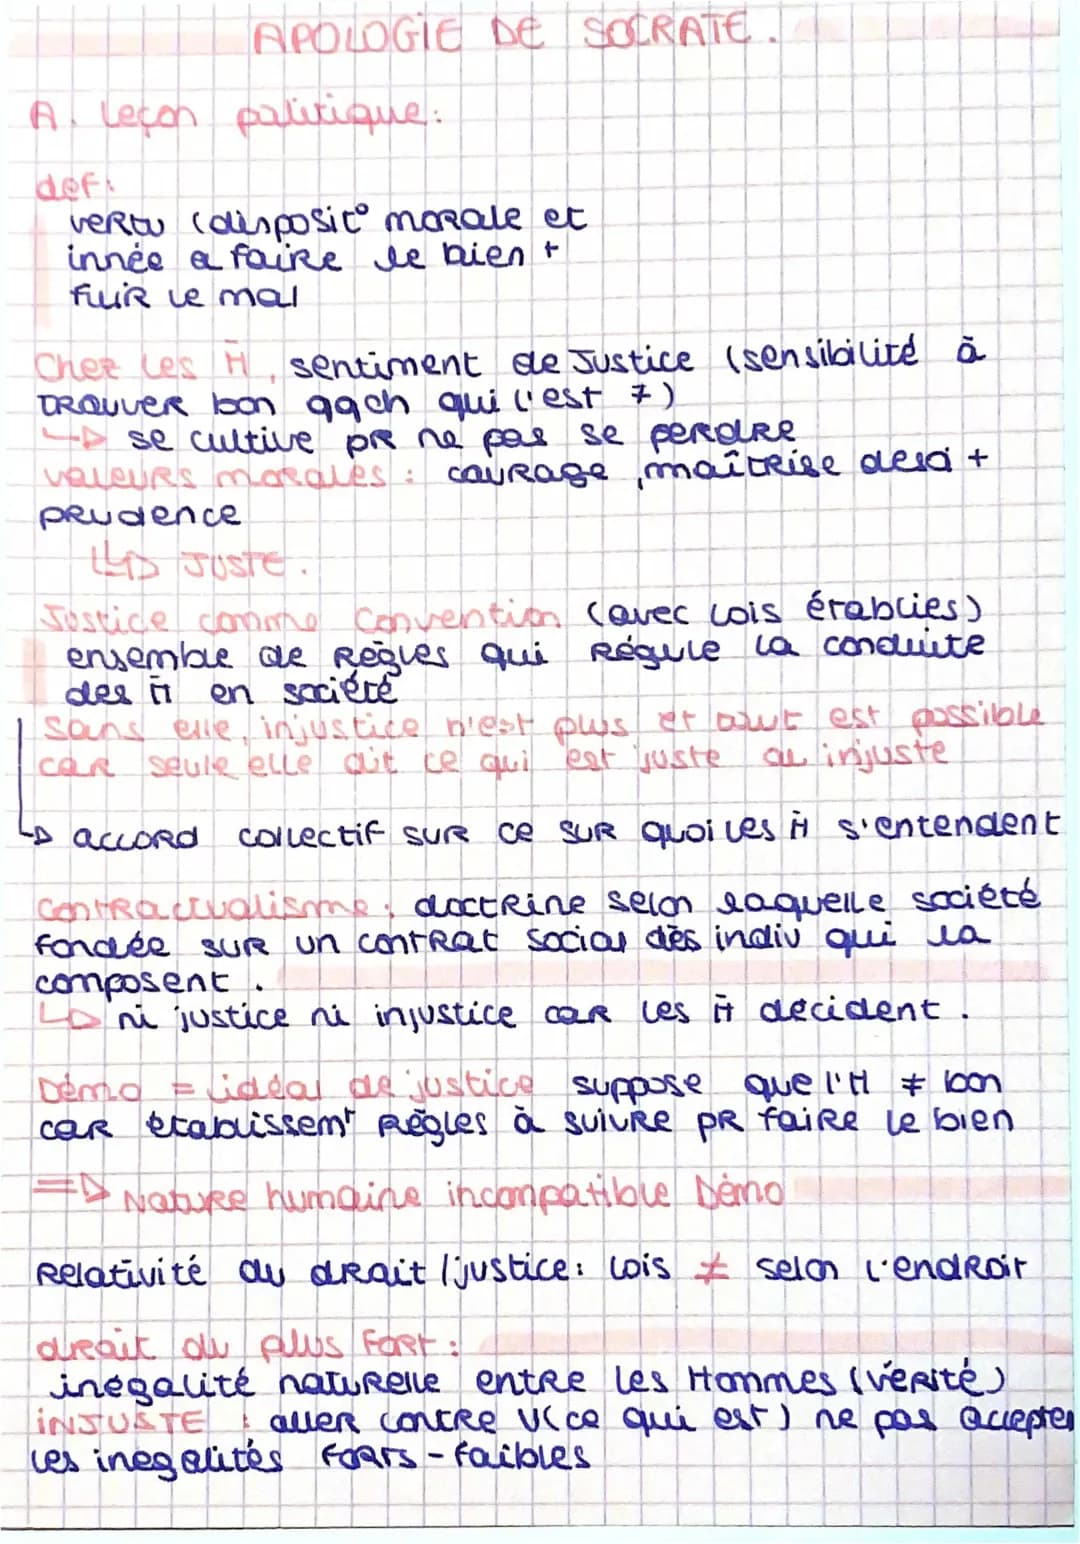 APOLOGIE DE SOCRATE.
A. Leçon politique:
def:
vertu (disposit° morale et
innée a faire le bien +
fuir le mal
Chez les H̄, sentiment de Justice (sensibilité à
trouver bon qqch qui l'est ≠)
↳ se cultive pr ne pas se perdre
valeurs morales : courage, maîtrise de soi +
prudence
↳ JUSTE.
Justice comme convention (avec lois établies)
ensemble de règles qui régule la conduite
des H̄ en société
sans elle, injustice n'est plus et tout est possible
car seule elle dit ce qui est juste ou injuste
↳ accord collectif sur ce sur quoi les H̄ s'entendent
Contractualisme : doctrine selon laquelle société
fondée sur un contrat social des indiv qui la
composent.
↳ ni justice ni injustice car les H̄ decident.
Démo = idéal de justice suppose que l'H ≠ bon
car établissemt règles à suivre pr faire le bien
=> Nature humaine incompatible Démo
Relativité du droit / justice: lois ≠ selon l'endroit
droit du plus fort :
inégalité naturelle entre les Hommes (vérité)
iNJUSTE : aller contre V(ce qui est) ne pas accepter
les inegalités forts - faibles